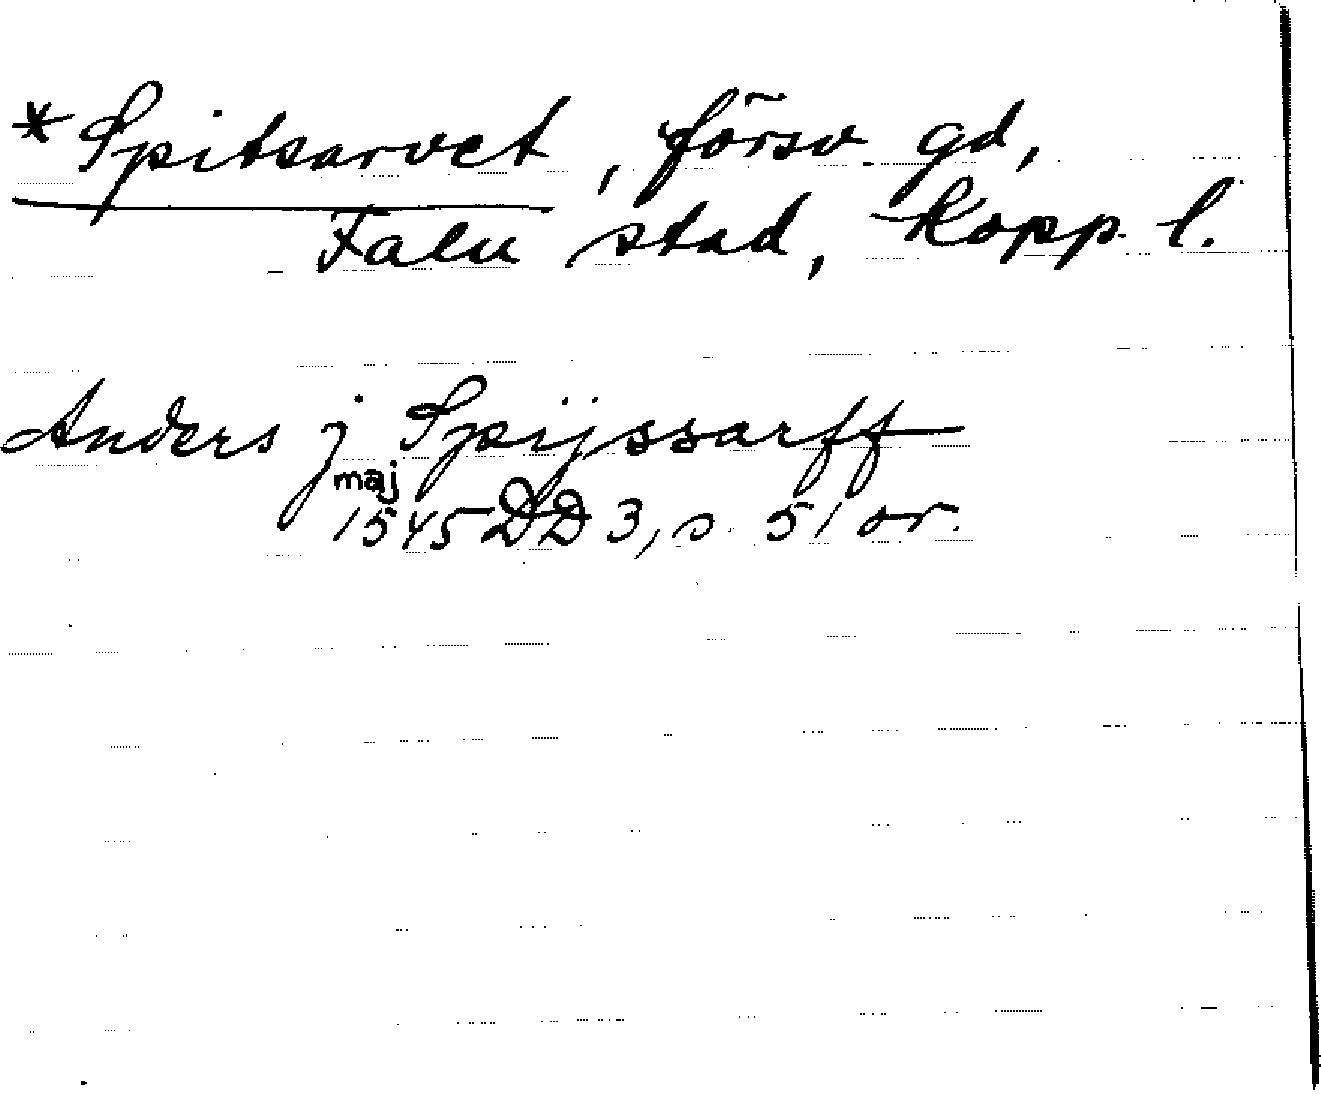 *Spitsarvet, försv. gd,
Falu stad, Kopp. l.
Anders j Spijssarff
maj
1545 DD 3, s. 51 or.